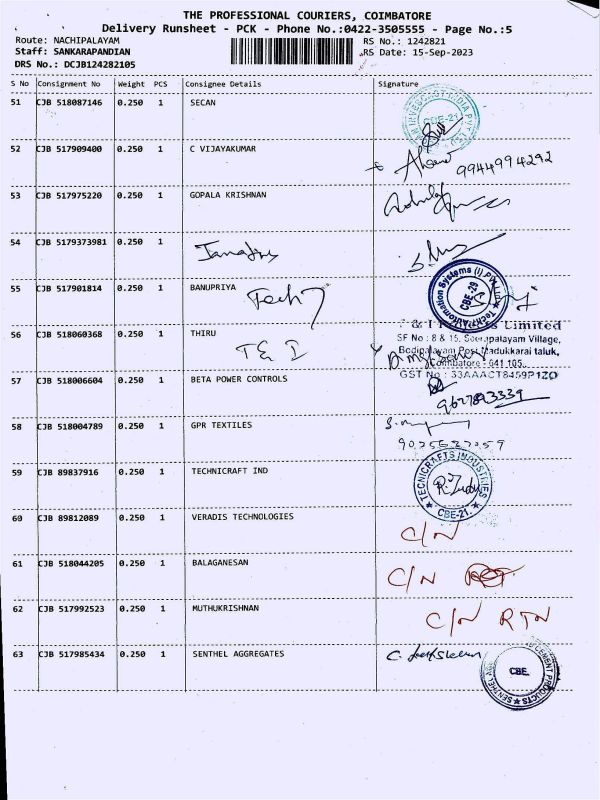 THE PROFESSIONAL COURIERS, COIMBATORE
Delivery Runsheet - PCK - Phone No.:0422-3505555 - Page No.:5
Route: NACHIPALAYAM
RS No.: 1242821
Staff: SANKARAPANDIAN
RS Date: 15-Sep-2023
DRS No.: DCJB124282105
S No Consignment No Weight PCS Consignee Details Signature
51 CJB 518087146 0.250 1 SECAN
CBE-21
52 CJB 517909400 0.250 1 C VIJAYAKUMAR
9944994292
53 CJB 517975220 0.250 1 GOPALA KRISHNAN
54 CJB 5179373981 0.250 1
55 CJB 517901814 0.250 1 BANUPRIYA
Tech 7
Automation Systems (I) Pvt Ltd
CBE-29
56 CJB 518060368 0.250 1 THIRU
T & I
& I Limited
SF No : 8 & 15, Seerapalayam Village,
Bodipalayam Post, Madukkarai taluk,
Coimbatore - 641 105.
GST No : 33AAACT8459P1ZO
57 CJB 518006604 0.250 1 BETA POWER CONTROLS
58 CJB 518004789 0.250 1 GPR TEXTILES
59 CJB 89837916 0.250 1 TECHNICRAFT IND
TECNICRAFTS INDUSTRIES
CBE-21.
60 CJB 89812089 0.250 1 VERADIS TECHNOLOGIES
C/N
61 CJB 518044205 0.250 1 BALAGANESAN
C/N
62 CJB 517992523 0.250 1 MUTHUKRISHNAN
C/N RTN
63 CJB 517985434 0.250 1 SENTHEL AGGREGATES
CBE.